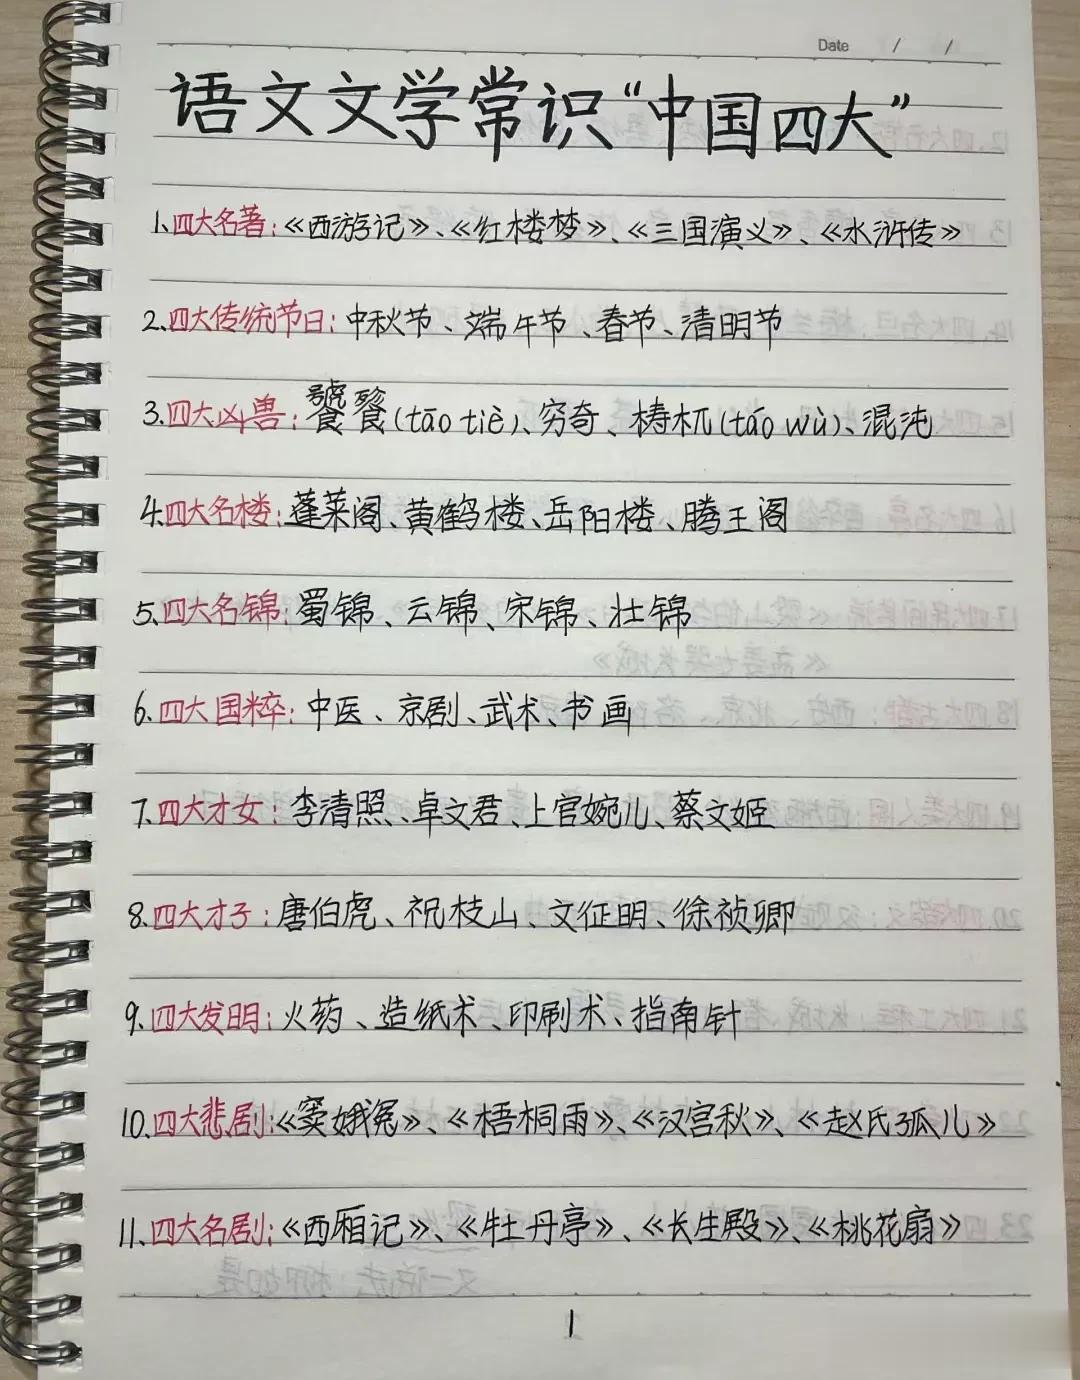 Date / /
语文文学常识“中国四大”
1.四大名著:《西游记》、《红楼梦》、《三国演义》、《水浒传》
2.四大传统节日:中秋节、端午节、春节、清明节
3.四大凶兽:饕餮(tāo tiè)、穷奇、梼杌(táo wù)、混沌
4.四大名楼:蓬莱阁、黄鹤楼、岳阳楼、腾王阁
5.四大名锦:蜀锦、云锦、宋锦、壮锦
6.四大国粹:中医、京剧、武术、书画
7.四大才女:李清照、卓文君、上官婉儿、蔡文姬
8.四大才子:唐伯虎、祝枝山、文征明、徐祯卿
9.四大发明:火药、造纸术、印刷术、指南针
10.四大悲剧:《窦娥冤》、《梧桐雨》、《汉宫秋》、《赵氏孤儿》
11.四大名剧:《西厢记》、《牡丹亭》、《长生殿》、《桃花扇》
1